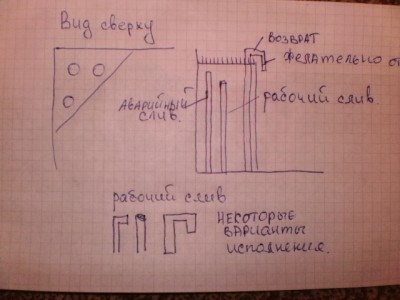 Вид сверху
ВОЗВРАТ
ЖЕЛАТЕЛЬНО
АВАРИЙНЫЙ
СЛИВ.
рабочий слив.
рабочий слив
НЕКОТОРЫЕ
ВАРИАНТЫ
исполнения.